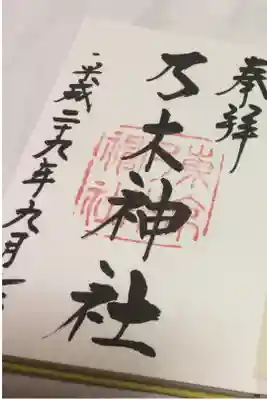 奉拝
乃木神社
平成二十九年九月